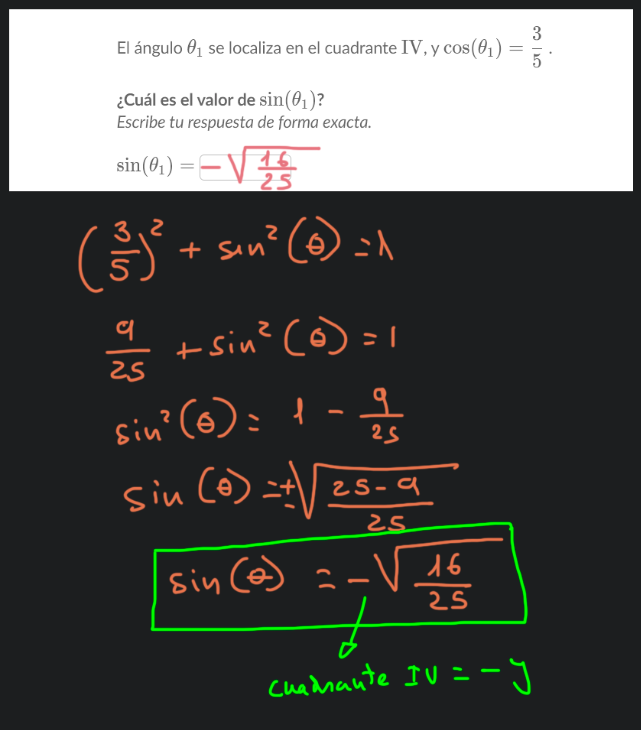 El ángulo θ₁ se localiza en el cuadrante IV, y cos(θ₁) = 3/5 .
¿Cuál es el valor de sin(θ₁)?
Escribe tu respuesta de forma exacta.
sin(θ₁) = -√(16/25)
(3/5)² + sin²(θ) = 1
9/25 + sin²(θ) = 1
sin²(θ) = 1 - 9/25
sin(θ) = ±√((25-9)/25)
sin(θ) = -√(16/25)
cuadrante IV = -y